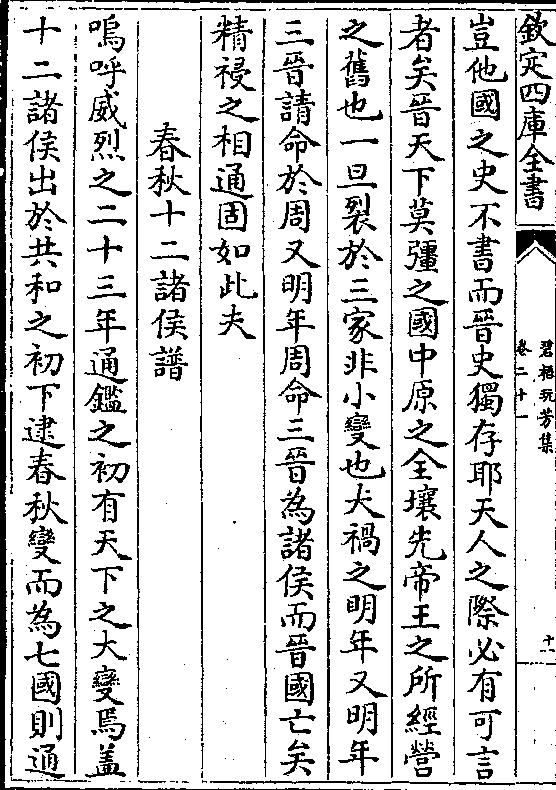 欽定四庫全書
碧梧玩芳集
卷二十一
十一
豈他國之史不書而晉史獨存耶天人之際必有可言
者矣晉天下莫彊之國中原之全壤先帝王之所經營
之舊也一旦裂於三家非小變也犬禍之明年又明年
三晉請命於周又明年周命三晉為諸侯而晉國亡矣
精祲之相通固如此夫
春秋十二諸侯譜
嗚呼威烈之二十三年通鑑之初有天下之大變焉盖
十二諸侯出於共和之初下逮春秋變而為七國則通